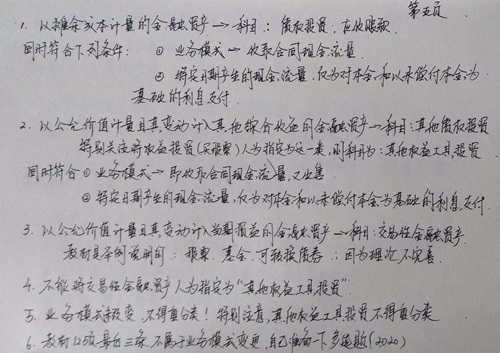 第五页
1. 以摊余成本计量的金融资产→科目：债权投资，应收账款
同时符合下列条件：① 业务模式→收取合同现金流量
② 特定日期产生的现金流量，仅为对本金和以未偿付本金为
基础的利息支付.
2. 以公允价值计量且其变动计入其他综合收益的金融资产→科目：其他债权投资
特别关注将权益投资(买股票)人为指定为这一类，则科目为：其他权益工具投资
同时符合 ① 业务模式→即收取合同现金流量，又出售
② 特定日期产生的现金流量，仅为对本金和以未偿付本金为基础的利息支付.
3. 以公允价值计量且其变动计入当期损益的金融资产→科目：交易性金融资产
教材具体例说明的：股票、基金、可转换债券：因为理次不安善.
4. 不能将交易性金融资产人为指定为“其他权益工具投资”
5. 业务模式改变，不得重分类！特别注意，其他权益工具投资不得重分类
6. 教材12页最后三条不属于业务模式变更，自己准备一下多选题(2020)